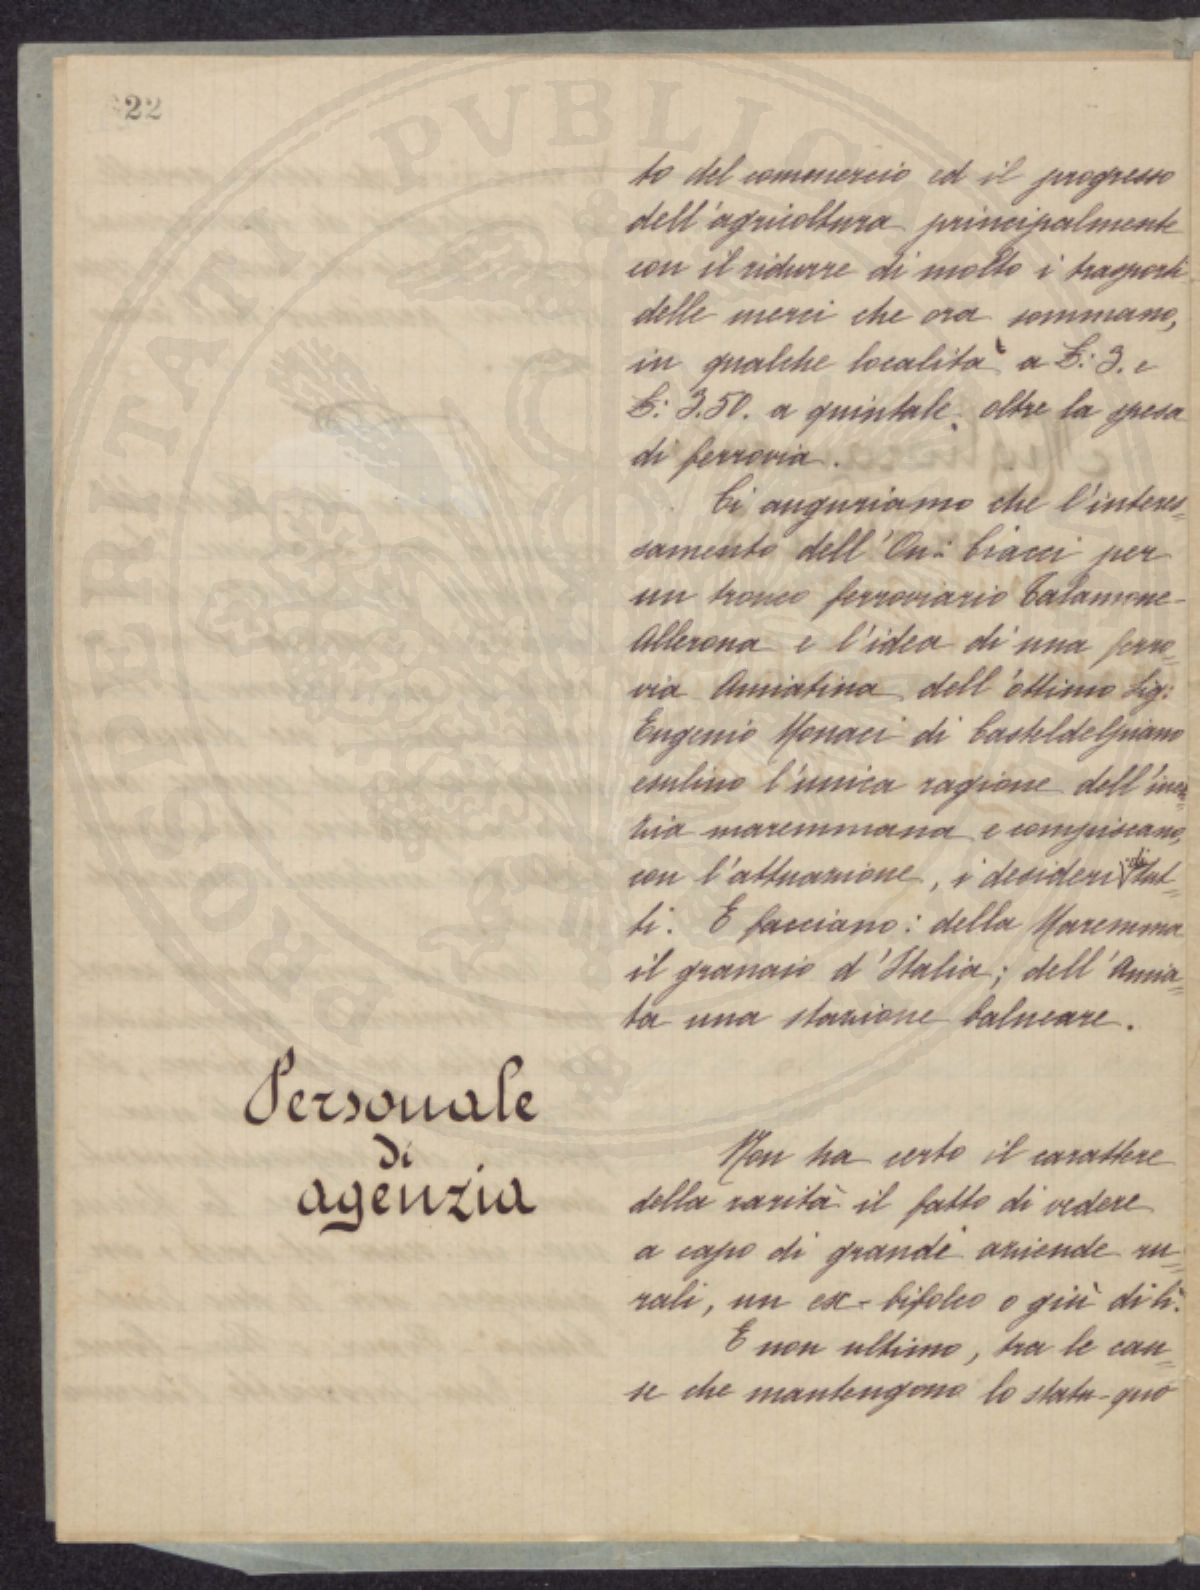 22
to del commercio ed il progresso
dell'agricoltura principalmente
con il ridurre di molto i trasporti
delle merci che ora sommano,
in qualche località a L: 3. e
L: 3.50. a quintale, oltre la spesa
di ferrovia.
Ci auguriamo che l'interes=
samento dell'On: Ciacci per
un tronco ferroviario Talamone-
Allerona e l'idea di una ferro=
via Amiatina dell'ottimo Sig:
Eugenio Monaci di Casteldelpiano
esulino l'unica ragione dell'iner=
zia maremmana e compiscano,
con l'attuazione, i desideri di tut=
ti. E facciano: della Maremma
il granaio d'Italia; dell'Amia=
ta una stazione balneare.
Personale
di
agenzia
Non ha certo il carattere
della rarità il fatto di vedere
a capo di grandi aziende ru=
rali, un ex-bifolco o giù di lì.
E non ultimo, tra le cau=
se che mantengono lo statu-quo
PROSPERITATI PVBLICAE